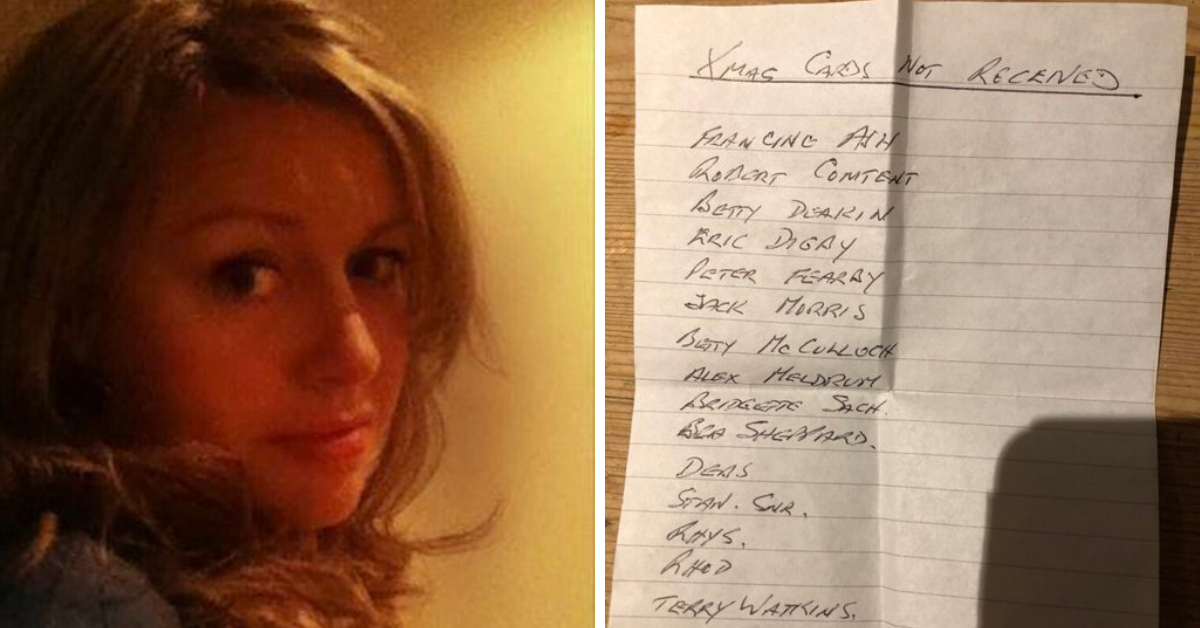 XMAS CARDS NOT RECEIVED
FRANCINE ASH
ROBERT CONTENT
BETTY DEAKIN
ERIC DIGBY
PETER FEARBY
JACK MORRIS
BETTY MCCULLOCH
ALEX MELDRUM
BRIDGETTE SACH.
BEA SHEPPARD.
DEBS
STAN. SNR.
RHYS.
RHOD
TERRY WATKINS.